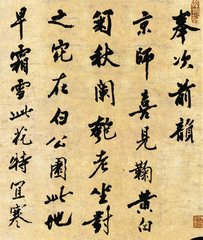 奉次前韻
京師喜見鞠黄白
菊秋闌老坐對
之宛在伯公園此地
早霜雪此花特宜寒